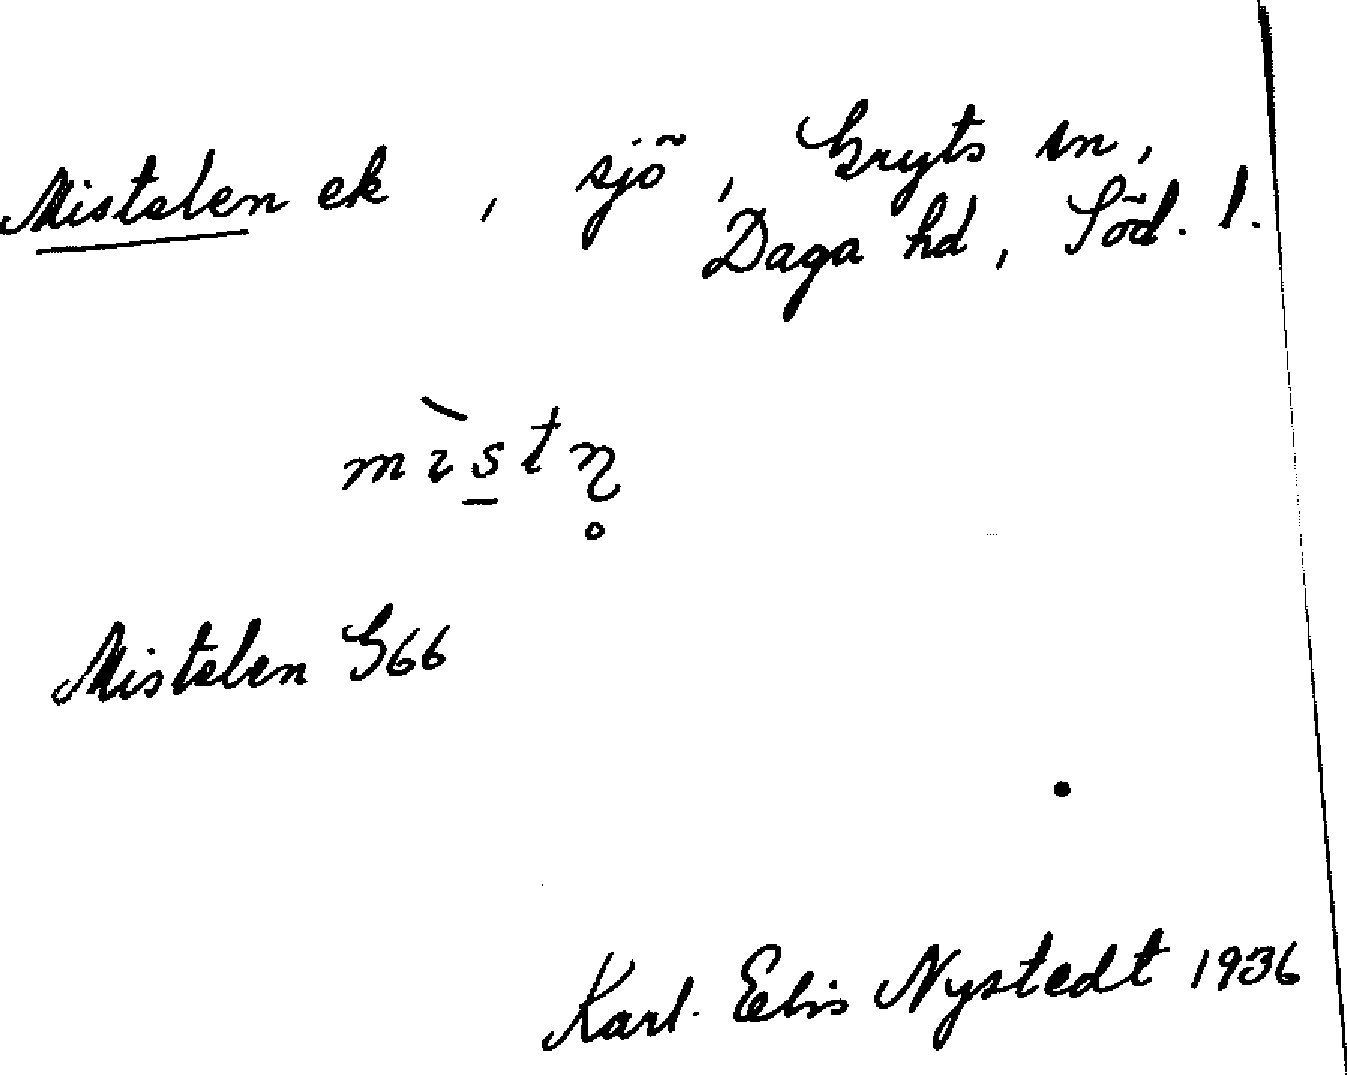 Mistelen ek, sjö, Gryts sn,
Daga hd, Söd. l.
Mistelen G66
Karl. Elis Nystedt 1936